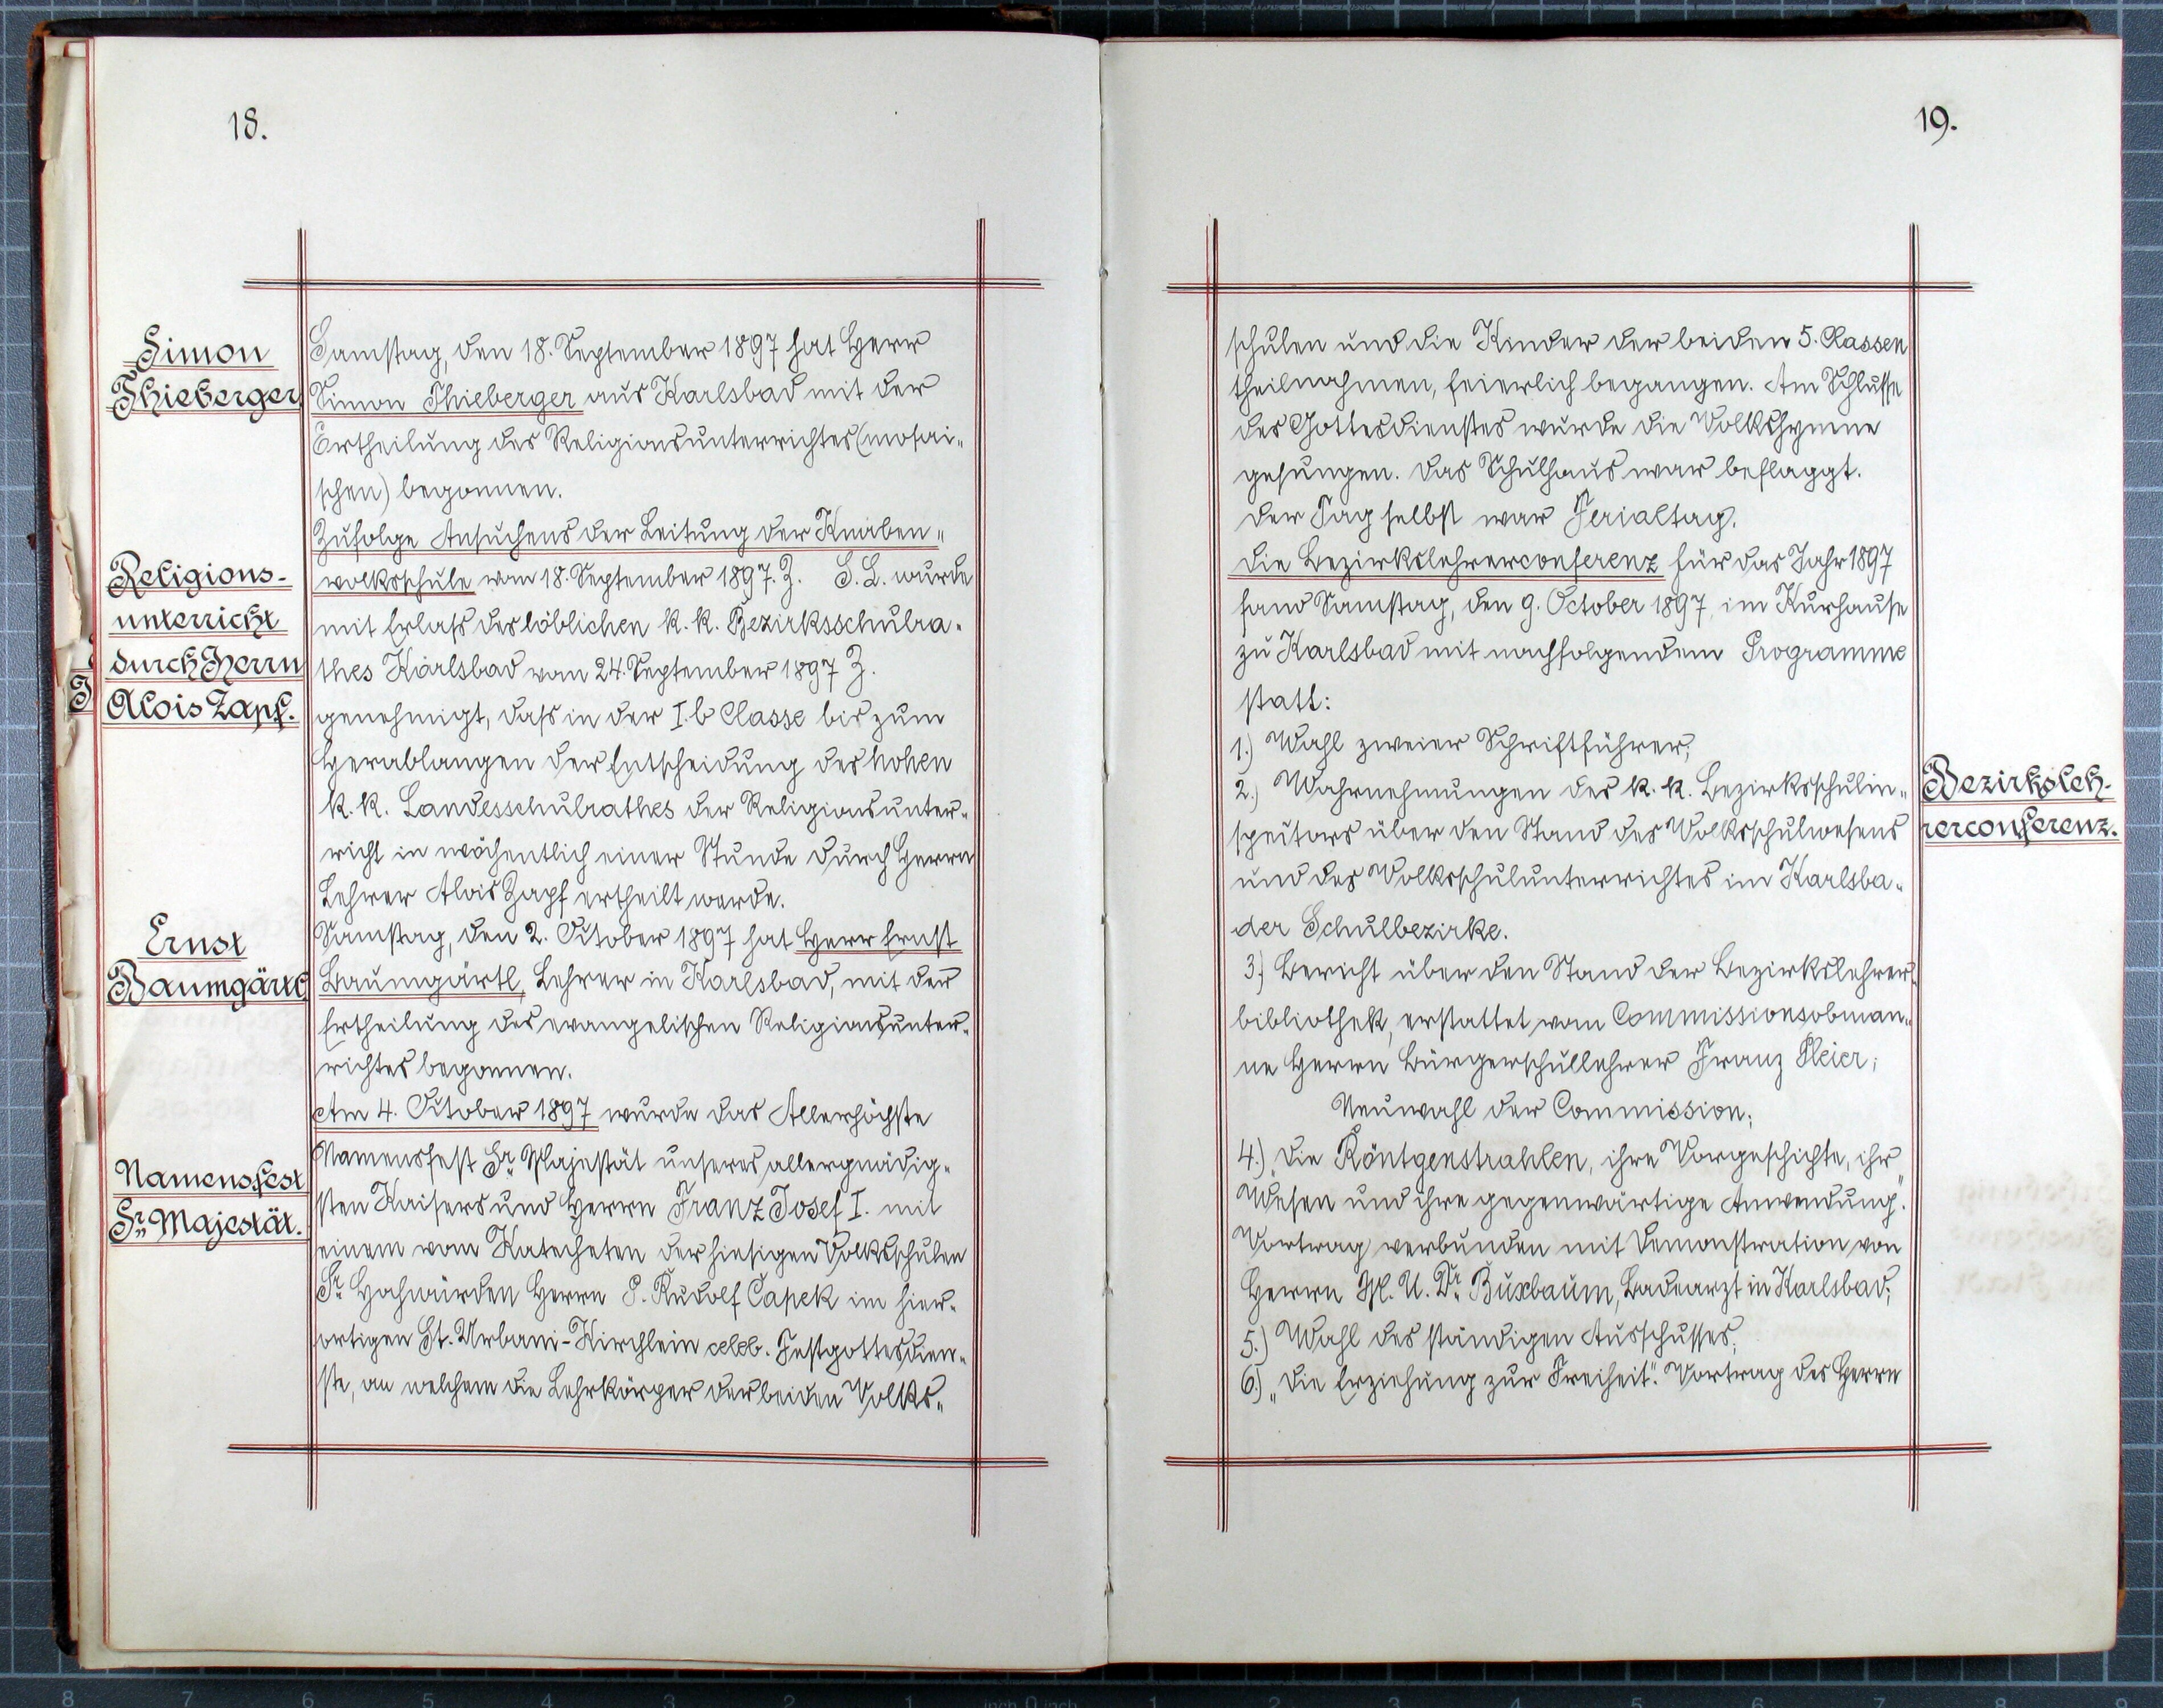 18.
Simon
Thieberger
Samstag, den 18. September 1897 hat Herr
Simon Thieberger aus Karlsbad mit der
Ertheilung des Religionsunterrichtes (mosai-
schen) begonnen.
Religions-
unterricht
durch Herrn
Alois Zapf.
Zufolge Ansuchens der Leitung der Knaben-
volksschule vom 18. September 1897. Z. S. L. wurde
mit Erlaß des löblichen k. k. Bezirksschulra-
thes Karlsbad vom 24. September 1897 Z.
genehmigt, daß in der I. b Classe bis zum
Herablangen der Entscheidung des hohen
k. k. Landesschulrathes der Religionsunter-
richt in wöchentlich einer Stunde durch Herrn
Lehrer Alois Zapf ertheilt werde.
Ernst
Baumgärtl
Samstag, den 2. October 1897 hat Herr Ernst
Baumgärtl, Lehrer in Karlsbad, mit der
Ertheilung des evangelischen Religionsunter-
richtes begonnen.
Namensfest
Sr. Majestät.
Am 4. October 1897 wurde das Allerhöchste
Namensfest Sr. Majestät unseres allergnädig-
sten Kaisers und Herrn Franz Josef I. mit
einem vom Katecheten der hiesigen Volksschulen
Sr. Hochwürden Herrn P. Rudolf Čapek im hier-
ortigen St. Urbani-Kirchlein celeb. Festgottesdien-
ste, an welchem die Lehrkörper der beiden Volks-
19.
schulen und die Kinder der beiden 5. Classen
theilnahmen, feierlich begangen. Am Schlusse
des Gottesdienstes wurde die Volkshymne
gesungen. Das Schulhaus war beflaggt.
Der Tag selbst war Ferialtag.
Die Bezirkslehrerconferenz für das Jahr 1897
fand Samstag, den 9. October 1897, im Kurhause
zu Karlsbad mit nachfolgendem Programme
statt:
1.) Wahl zweier Schriftführer;
Bezirksleh-
rerconferenz.
2.) Wahrnehmungen des k. k. Bezirksschulin-
spectors über den Stand des Volksschulwesens
und des Volksschulunterrichtes im Karlsba-
der Schulbezirke.
3.) Bericht über den Stand der Bezirkslehrer-
bibliothek, erstattet vom Commissionsobman-
ne Herrn Bürgerschullehrer Franz Pleier;
Neuwahl der Commission;
4.) „Die Röntgenstrahlen, ihre Vorgeschichte, ihr
Wesen und ihre gegenwärtige Anwendung".
Vortrag verbunden mit Demonstration von
Herrn M. U. Dr. Buxbaum, Badearzt in Karlsbad;
5.) Wahl des ständigen Ausschusses;
6.) „Die Erziehung zur Freiheit". Vortrag des Herrn